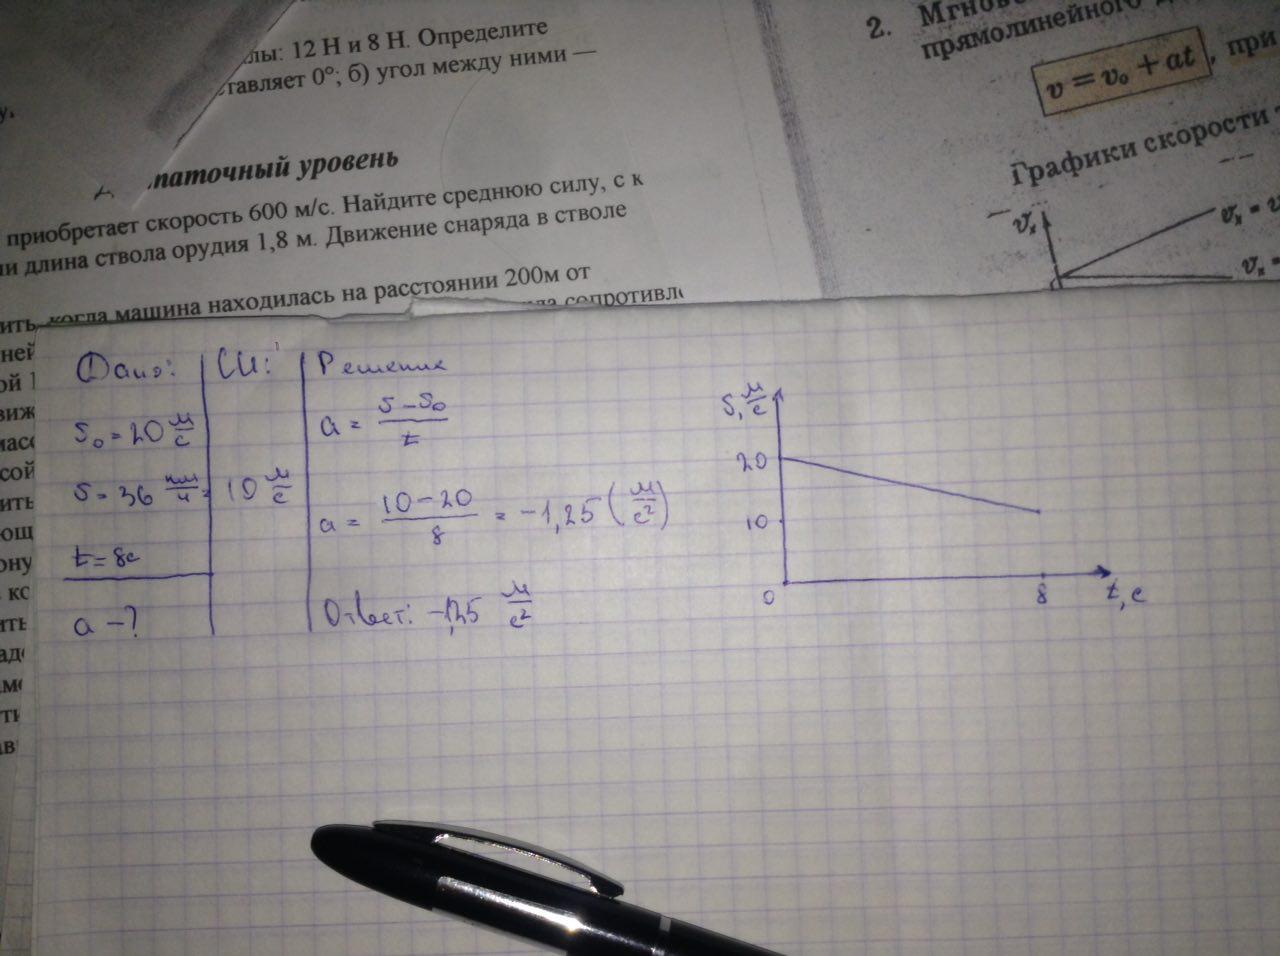 лы: 12 Н и 8 Н. Определите
ставляет 0°; б) угол между ними —
у.
таточный уровень
приобретает скорость 600 м/с. Найдите среднюю силу, с к
и длина ствола орудия 1,8 м. Движение снаряда в стволе
ить, когда машина находилась на расстоянии 200м от
сопротивл
2. Мгнове
прямолинейного
v = v₀ + at, при
Графики скорости
vₓ
vₓ = v
vₓ =
Дано:
S₀ = 20 м/с
S = 36 км/ч =
t = 8с
a – ?
СИ:
10 м/с
Решение
a = (S – S₀)/t
a = (10 – 20)/8 = –1,25 (м/с²)
Ответ: –1,25 м/с²
S, м/с
20
10
0
8
t, с